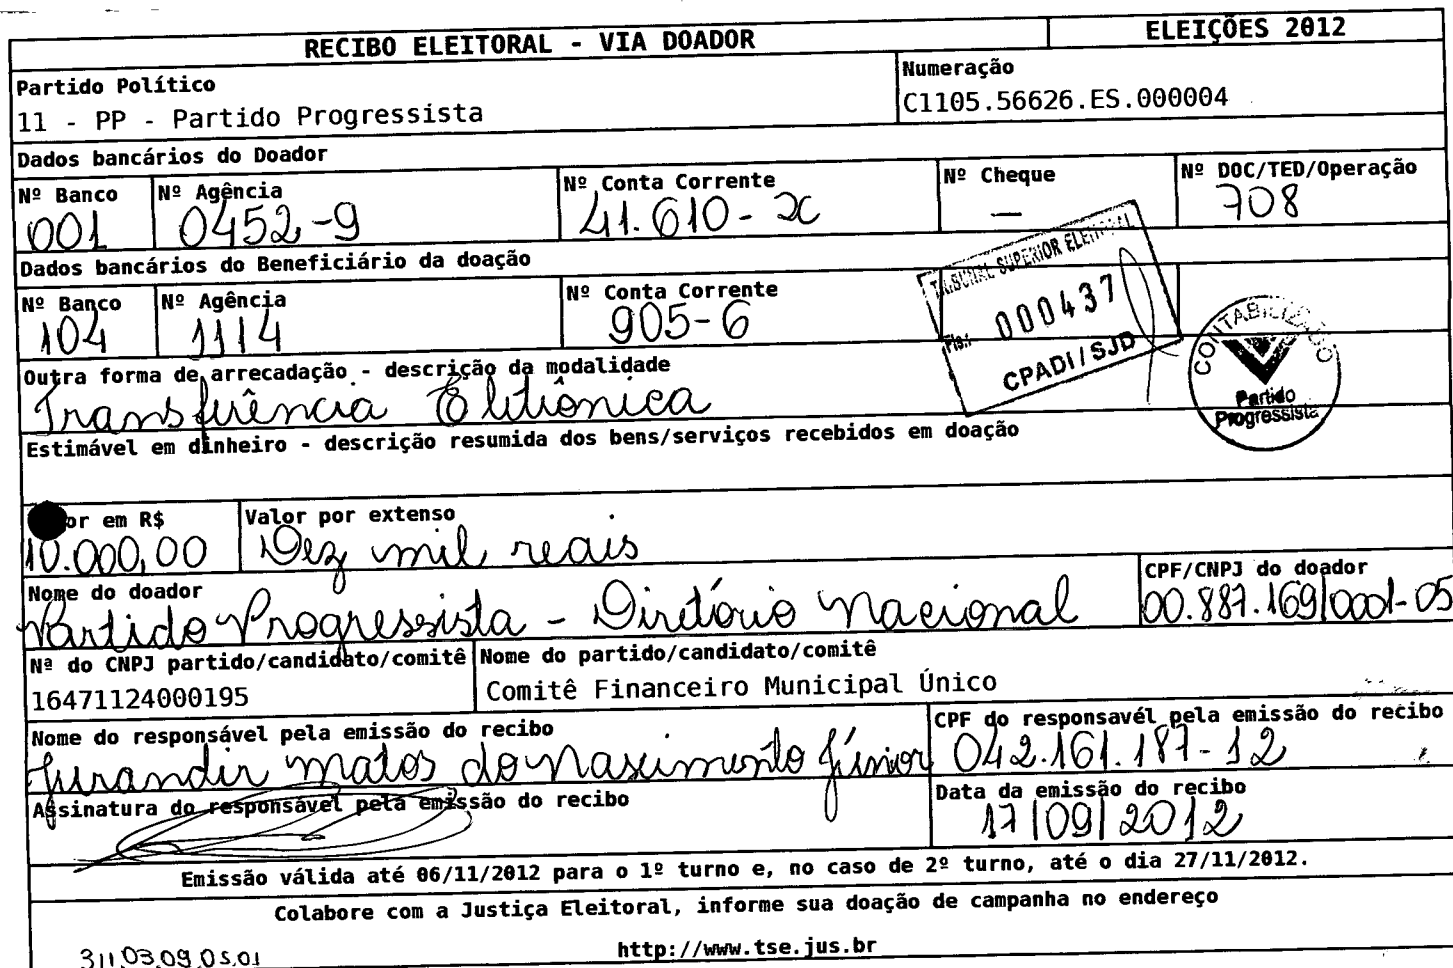 RECIBO ELEITORAL - VIA DOADOR
ELEIÇÕES 2012
Partido Político
11 - PP - Partido Progressista
Numeração
C1105.56626.ES.000004
Dados bancários do Doador
Nº Banco
001
Nº Agência
0452-9
Nº Conta Corrente
41.610-x
Nº Cheque
—
Nº DOC/TED/Operação
708
Dados bancários do Beneficiário da doação
Nº Banco
104
Nº Agência
1114
Nº Conta Corrente
905-6
TRIBUNAL SUPERIOR ELEITORAL
Fls.: 000437
CPADI/SJD
CONTABILIZADO
Partido
Progressista
Outra forma de arrecadação - descrição da modalidade
Transferência Eletrônica
Estimável em dinheiro - descrição resumida dos bens/serviços recebidos em doação
or em R$
10.000,00
Valor por extenso
Dez mil reais
Nome do doador
Partido Progressista - Diretório Nacional
CPF/CNPJ do doador
00.887.169/0001-05
Nª do CNPJ partido/candidato/comitê
16471124000195
Nome do partido/candidato/comitê
Comitê Financeiro Municipal Único
Nome do responsável pela emissão do recibo
Jurandir Matos do Nascimento Júnior
CPF do responsavél pela emissão do recibo
042.161.187-12
Assinatura do responsável pela emissão do recibo
Data da emissão do recibo
17/09/2012
Emissão válida até 06/11/2012 para o 1º turno e, no caso de 2º turno, até o dia 27/11/2012.
Colabore com a Justiça Eleitoral, informe sua doação de campanha no endereço
http://www.tse.jus.br
311.03.09.05.01